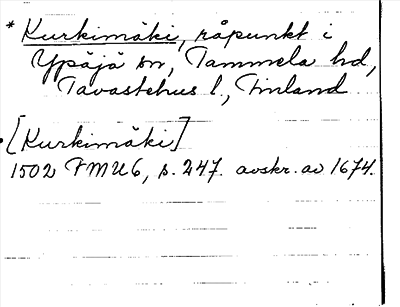 * Kurkimäki, råpunkt i
Ypäjä sn, Tammela hd,
Tavastehus l., Finland
[Kurkimäki]
1502 FMU6, s. 247. avskr. av 1674.